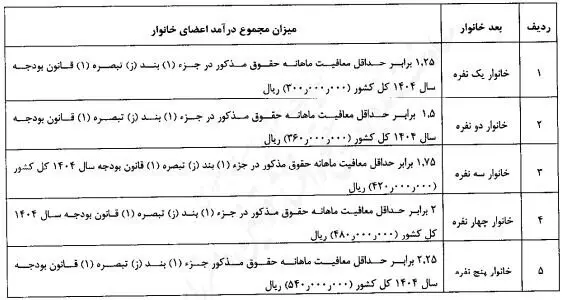 ردیف
بعد خانوار
میزان مجموع درآمد اعضای خانوار
۱
خانوار یک نفره
۱٫۲۵ برابر حداقل معافیت ماهانه حقوق مذکور در جزء (۱) بند (ز) تبصره (۱) قانون بودجه
سال ۱۴۰۴ کل کشور (۳۰۰ر۰۰۰ر۰۰۰) ریال
۲
خانوار دو نفره
۱٫۵ برابر حداقل معافیت ماهانه حقوق مذکور در جزء (۱) بند (ز) تبصره (۱) قانون بودجه
سال ۱۴۰۴ کل کشور (۳۶۰ر۰۰۰ر۰۰۰) ریال
۳
خانوار سه نفره
۱٫۷۵ برابر حداقل معافیت ماهانه حقوق مذکور در جزء (۱) بند (ز) تبصره (۱) قانون بودجه سال ۱۴۰۴ کل کشور
(۴۲۰ر۰۰۰ر۰۰۰) ریال
۴
خانوار چهار نفره
۲ برابر حداقل معافیت ماهانه حقوق مذکور در جزء (۱) بند (ز) تبصره (۱) قانون بودجه سال ۱۴۰۴
کل کشور (۴۸۰ر۰۰۰ر۰۰۰) ریال
۵
خانوار پنج نفره
۲٫۲۵ برابر حداقل معافیت ماهانه حقوق مذکور جزء (۱) بند (ز) تبصره (۱) قانون بودجه
سال ۱۴۰۴ کل کشور (۵۴۰ر۰۰۰ر۰۰۰) ریال